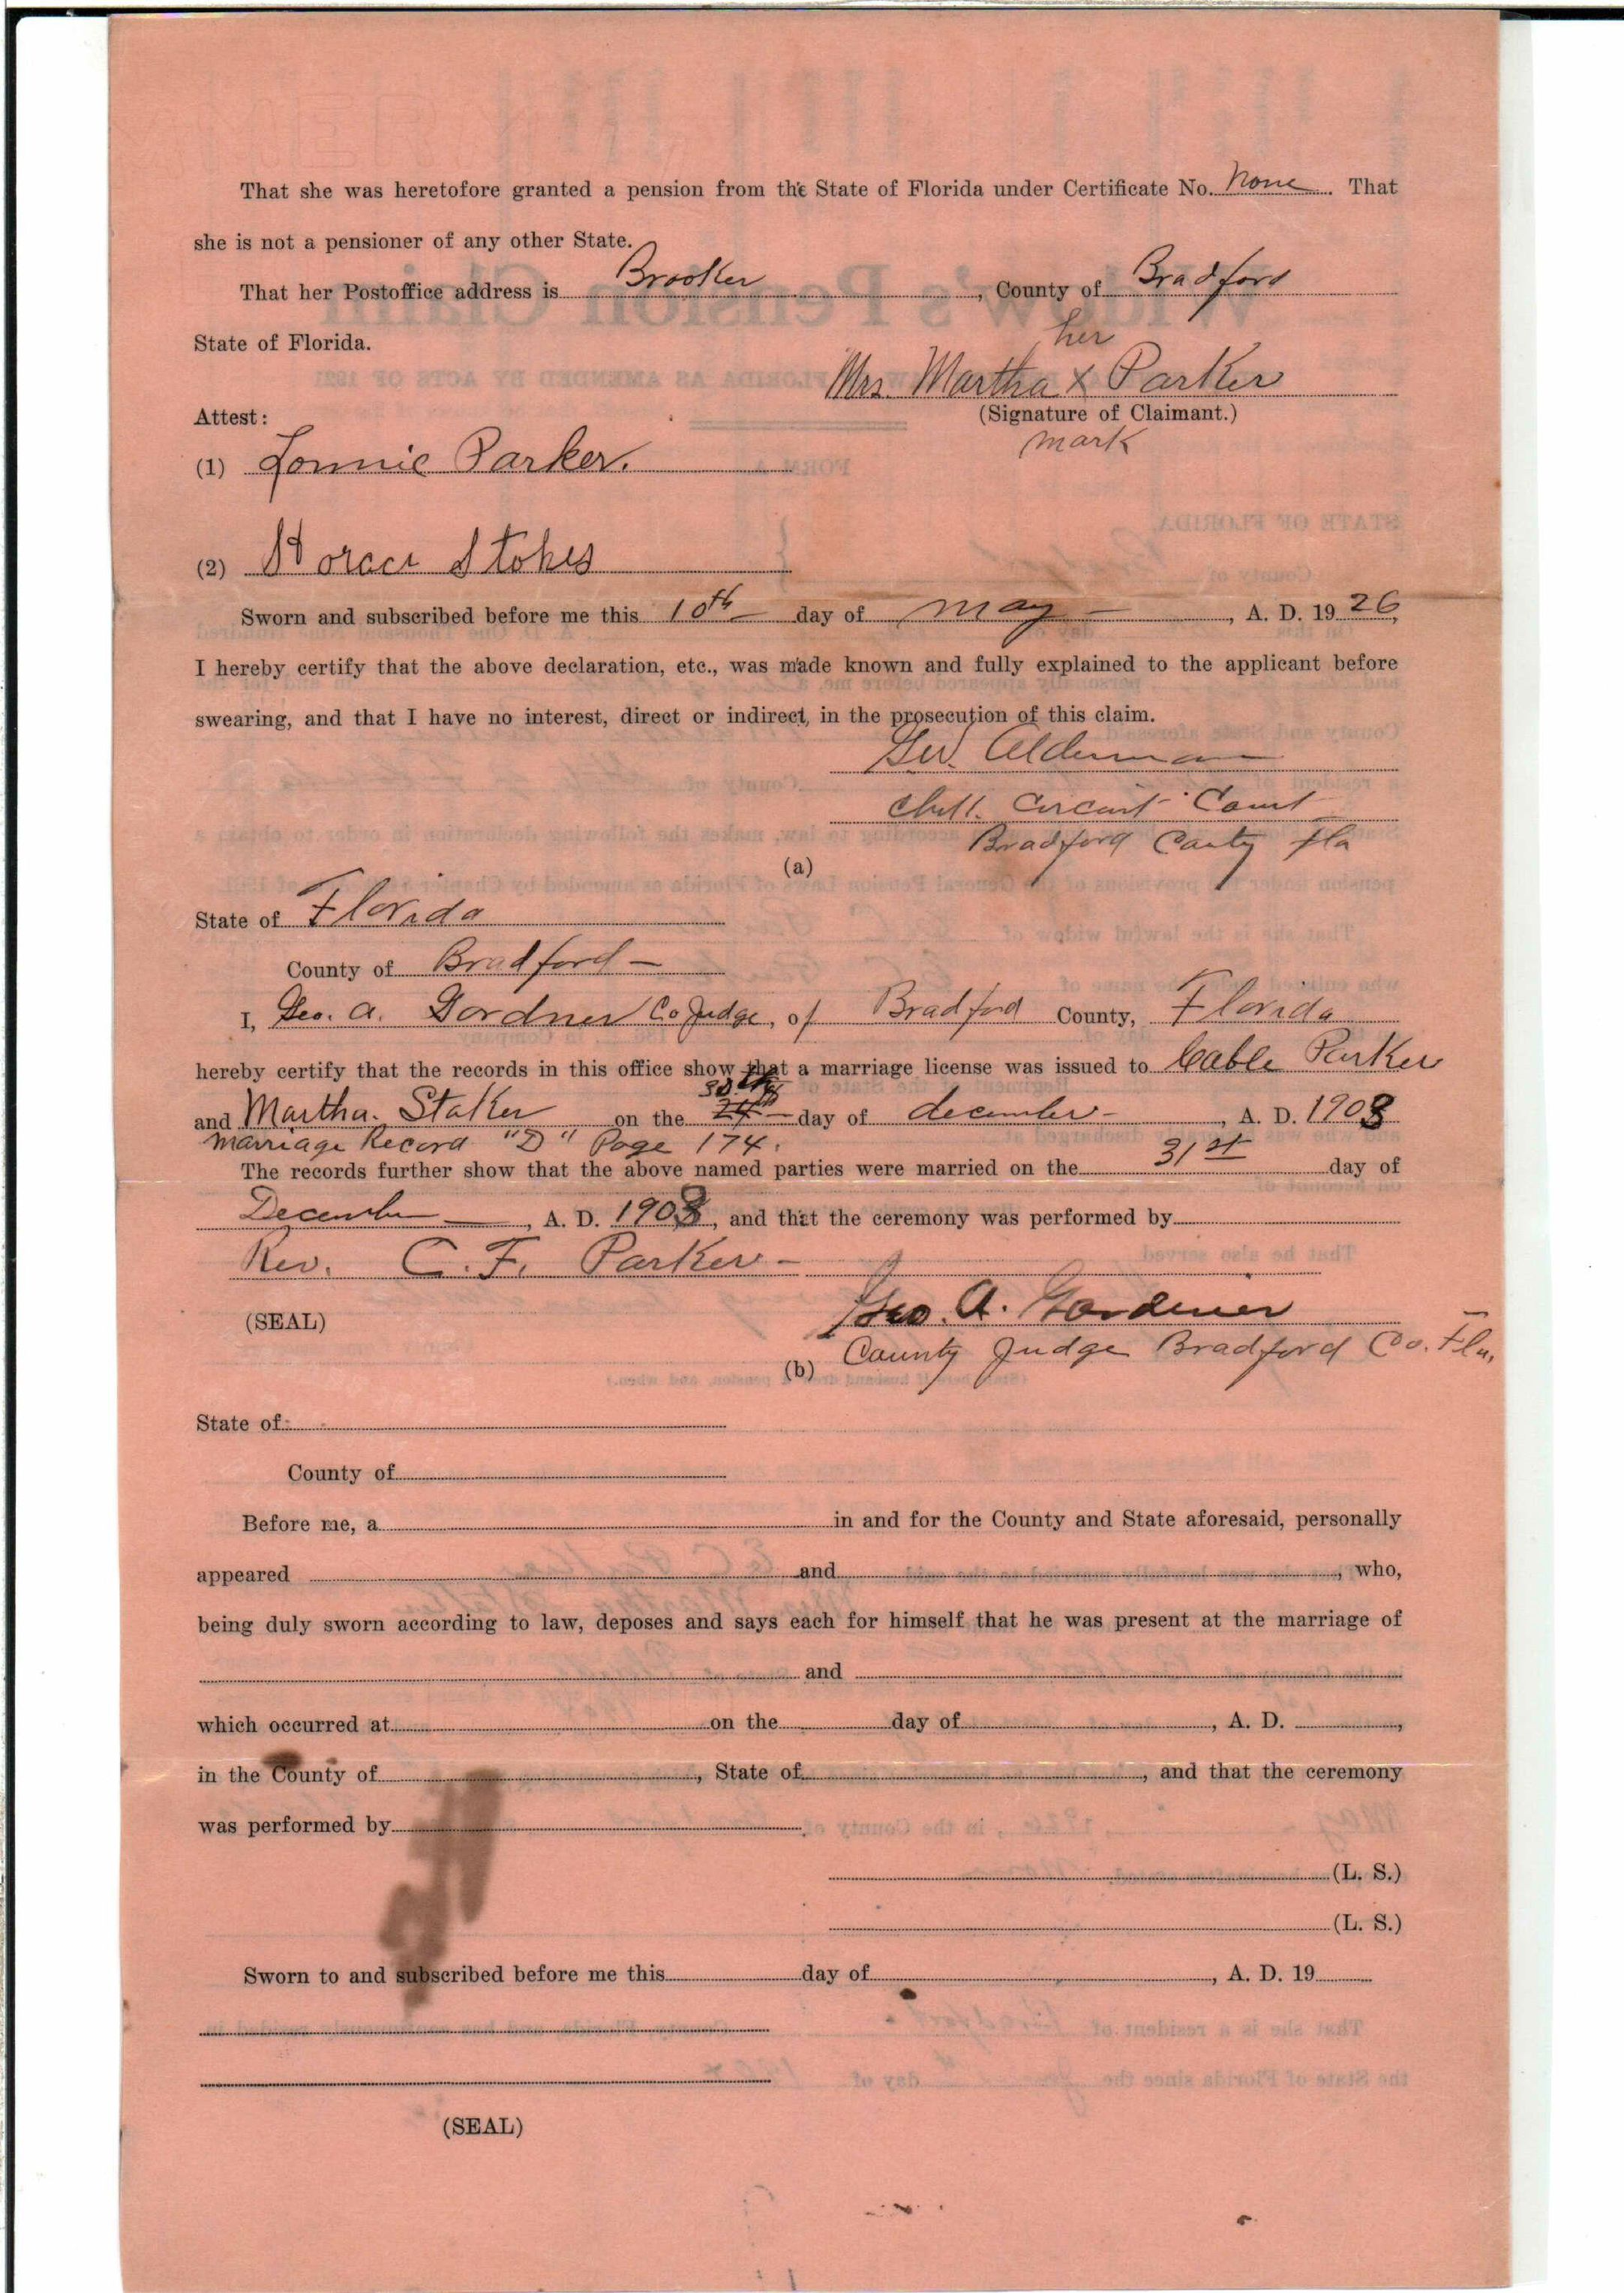 That she was heretofore granted a pension from the State of Florida under Certificate No. None. That
she is not a pensioner of any other State.
That her Postoffice address is Brooker, County of Bradford
State of Florida.
her
Mrs. Martha x Parker
Attest:
(Signature of Claimant.)
mark
(1) Lonnie Parker.
(2) Horace Stokes
Sworn and subscribed before me this 10th day of May, A. D. 1926,
I hereby certify that the above declaration, etc., was made known and fully explained to the applicant before
swearing, and that I have no interest, direct or indirect, in the prosecution of this claim.
Alderman
Circuit Court
Bradford County Fla
(a)
State of Florida
County of Bradford
I, Geo. A. Gardner Co Judge, of Bradford County, Florida
hereby certify that the records in this office show that a marriage license was issued to Cable Parker
30th
and Martha. Stalker on the day of december, A. D. 1908
Marriage Record "D" Page 174.
The records further show that the above named parties were married on the 31st day of
December, A. D. 1908, and that the ceremony was performed by
Rev. C. F. Parker
(SEAL)
Geo. A. Gardner
County Judge Bradford Co. Fla.
(b)
State of
County of
Before me, a in and for the County and State aforesaid, personally
appeared and , who,
being duly sworn according to law, deposes and says each for himself that he was present at the marriage of
and
which occurred at on the day of , A. D. ,
in the County of , State of , and that the ceremony
was performed by
(L. S.)
(L. S.)
Sworn to and subscribed before me this day of , A. D. 19
(SEAL)